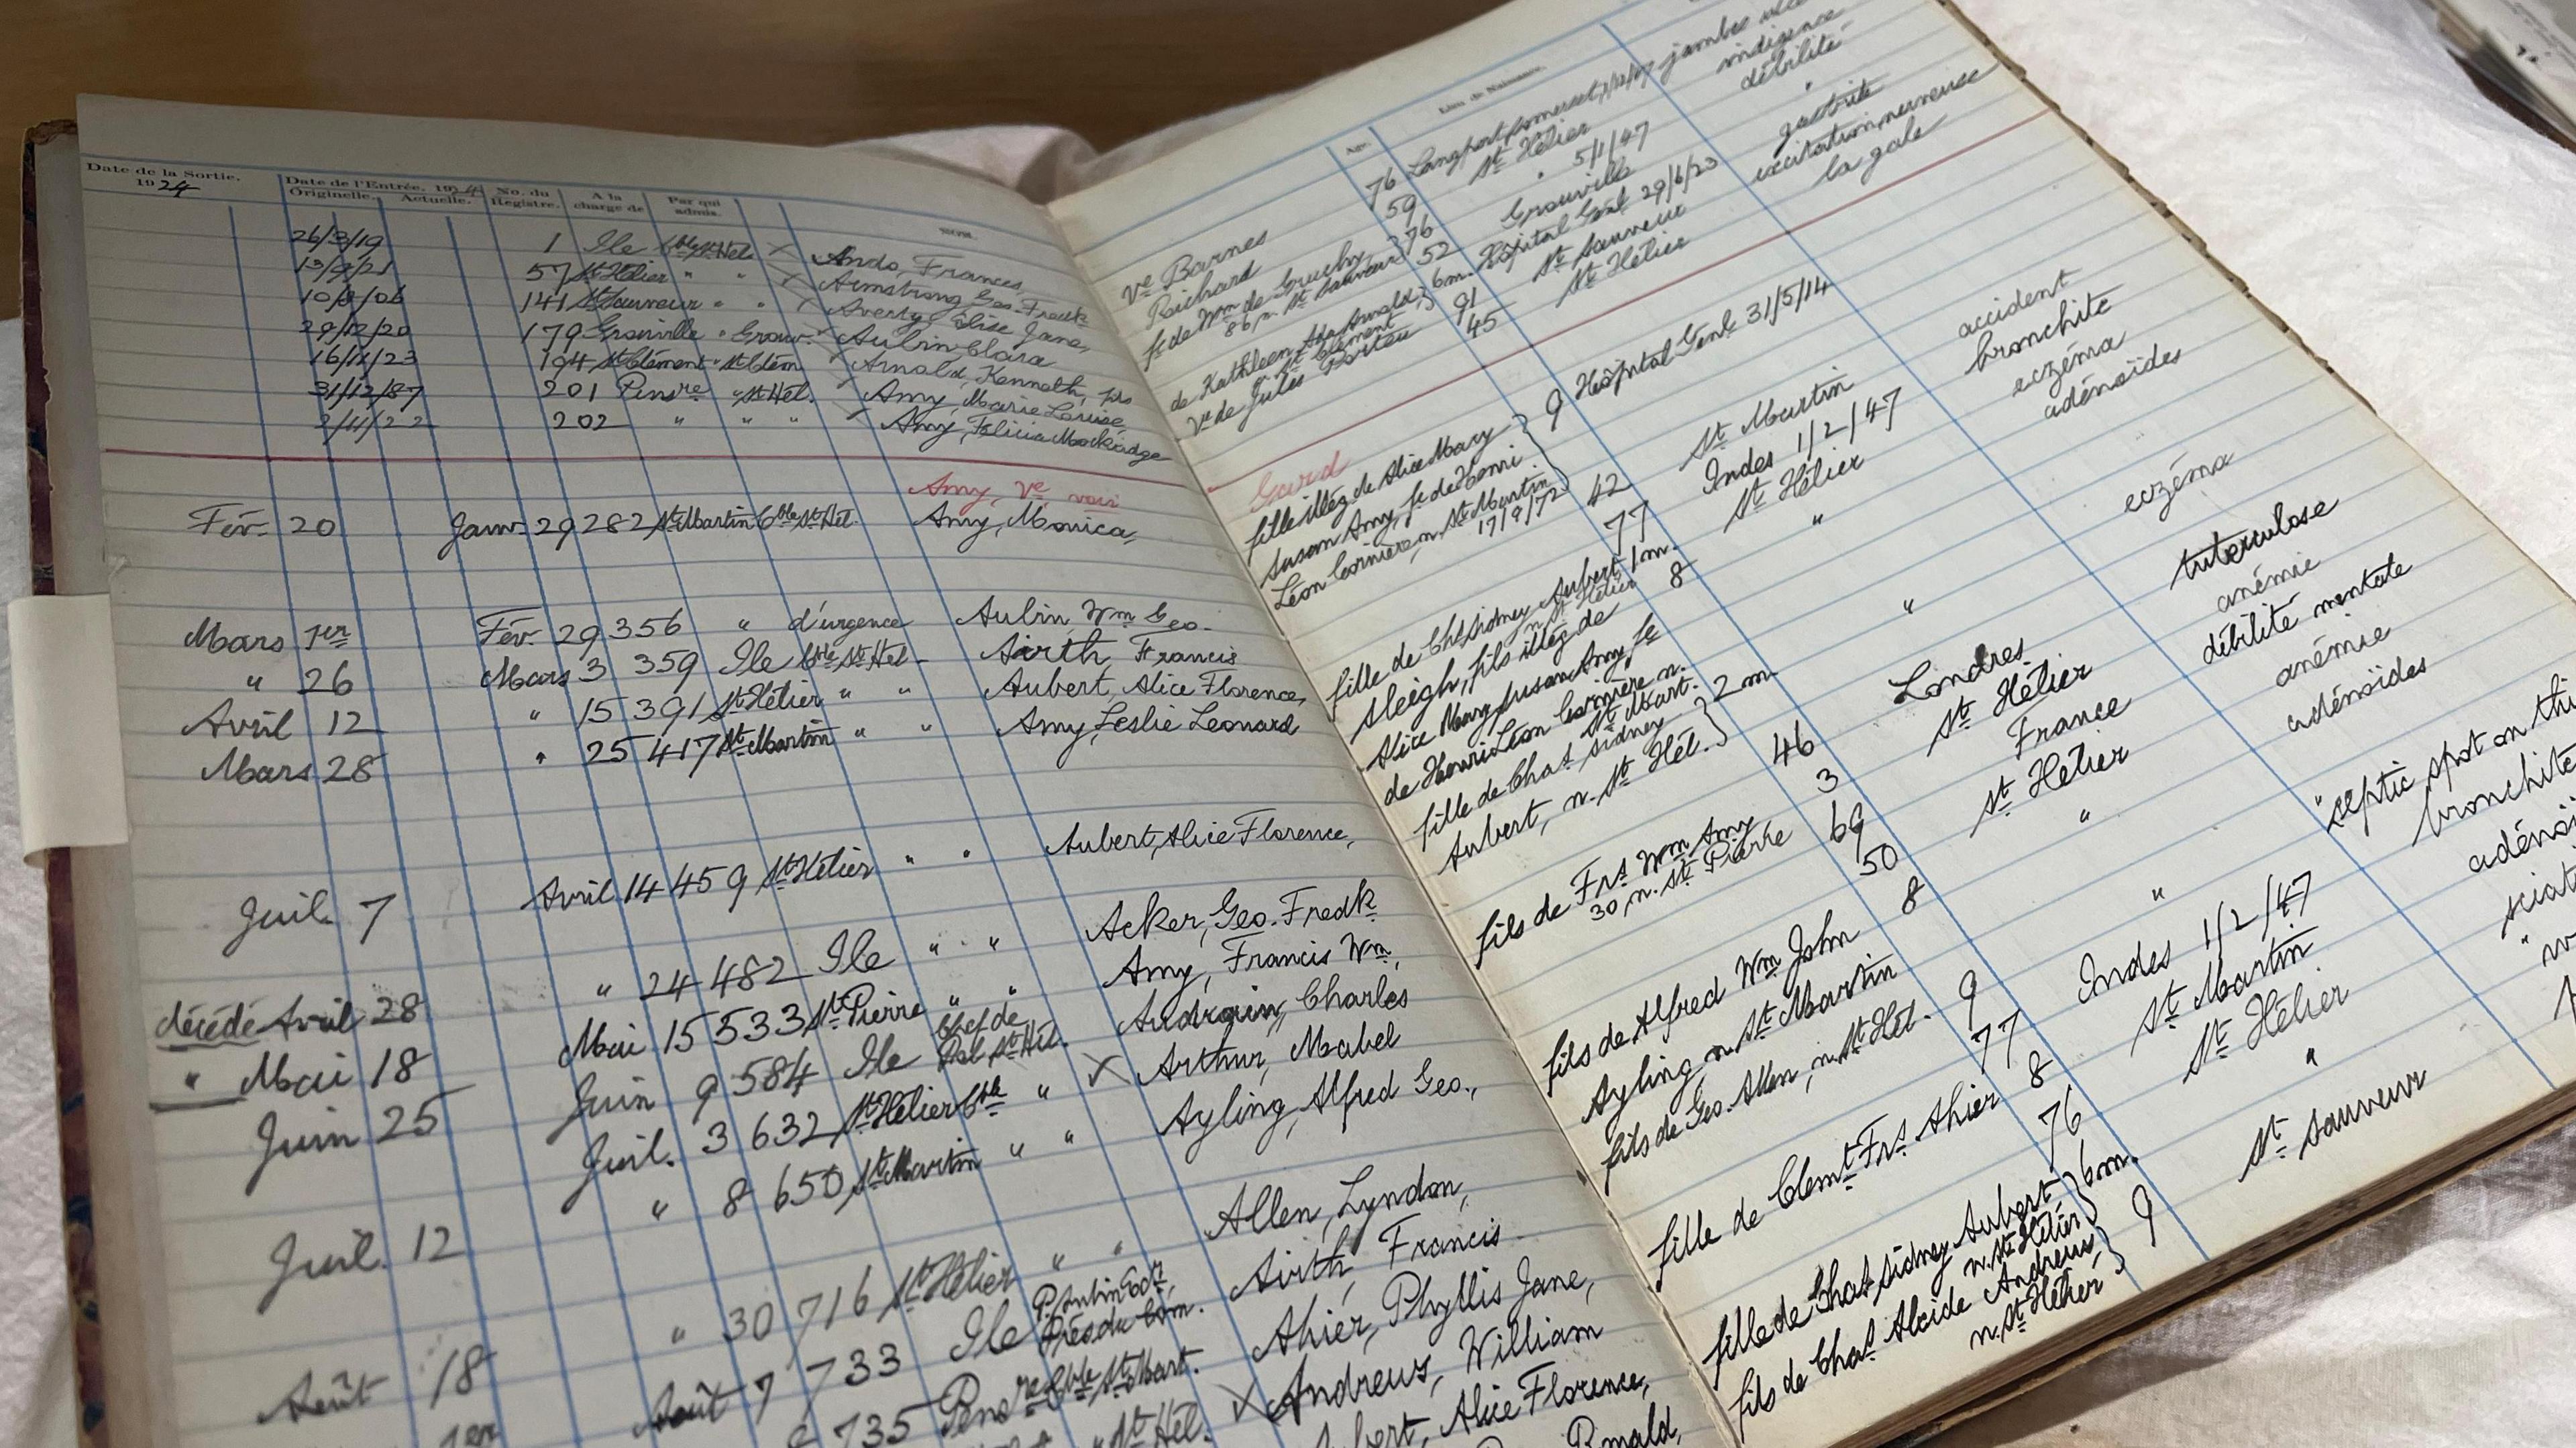 Date de la Sortie. 1924
Date de l'Entrée. 1924
Originelle. Actuelle.
No. du Registre.
A la charge de
Par qui admis.
NOM.
26/3/19 1 Ile Cble St Hel. × Ando, Frances,
57 St Hélier " " × Armstrong Geo. Fredk
141 St Sauveur " " Averty Elise Jane,
29/12/20 179 Grouville " Grouv. Aubin Clara
16/11/23 194 St Clément " St Clém Arnold, Kenneth, fils
31/12/87 201 Pensre " St Hel. Amy, Marie Louise,
2/11/22 202 " " " Amy, Felicia Mockridge
Amy, Ve voir
Fév. 20 Janv. 29 282 St Martin Cble St Hel. Amy, Monica,
Mars 1er Fév. 29 356 " d'urgence Aubin, Wm Geo.
" 26 Mars 3 359 Ile Cble St Hel. Airth, Francis
Avril 12 " 15 391 St Hélier " " Aubert, Alice Florence,
Mars 28 " 25 417 St Martin " " Amy, Leslie Leonard
Juil. 7 Avril 14 459 St Hélier " " Aubert, Alice Florence,
décédé Avril 28 " 24 482 Ile " " Acker, Geo. Fredk
" Mai 18 Mai 15 533 St Pierre " " Amy, Francis Wm,
Juin 25 Juin 9 584 Ile Chef de Pol St Hel. Audrain, Charles
Juil. 3 632 St Hélier Cble " × Arthur, Mabel
Juil. 12 " 8 650 St Martin " " Ayling, Alfred Geo.,
Août 18 " 30 716 St Hélier " " Allen, Lyndon,
Août 7 733 Ile Prés du Com. Airth, Francis
735 Pensre Cble St Mart. Ahier, Phyllis Jane,
St Hel. × Andrews, William
Alice Florence,
Ronald,
Age.
Lieu de Naissance.
Ve Barnes 76 Langport, Somerset, jambes
Richard 59 St Hélier indigence
fe de Wm de Gruchy, 76 " 5/1/47 débilité
St Sauveur 52 Grouville "
de Kathleen Ada Arnold, 6m. Hôpital Genl 29/6/23 gastrite
St Clément 91 St Sauveur excitation nerveuse
Ve de Jules Porteu 45 St Hélier la gale
Gard
fille illég de Alice Mary 9 Hôpital Genl 31/5/14 accident
Susan Amy, fe de Henri
Léon Cornière n. St Martin
17/9/72
42 St Martin bronchite
77 Indes 1/2/47 eczéma
fille de Chs Sidney Aubert 1m. St Hélier adénoïdes
n. St Hélier
Sleigh, fils illég de 8 "
Alice Mary Susan Amy fe
de Henri Léon Cornière n.
St Mart.
fille de Chas Sidney 2 m. " eczéma
Aubert, n. St Hél.
46 Londres tuberculose
fils de Frs Wm Amy 3 St Hélier anémie
30, n. St Pierre
69 France débilité mentale
50 St Hélier anémie
fils de Alfred Wm John 8 " adénoïdes
Ayling n. St Martin
fils de Geo. Allen, n. St Hél. 9 " "septic spot on
77 Indes 1/2/47 bronchite
fille de Clemt Frs Ahier 8 St Martin
76 St Hélier
fille de Chas Sidney Aubert 6m. "
n. St Hélier
fils de Chas Alcide Andrews 9 St Sauveur
n. St Hélier